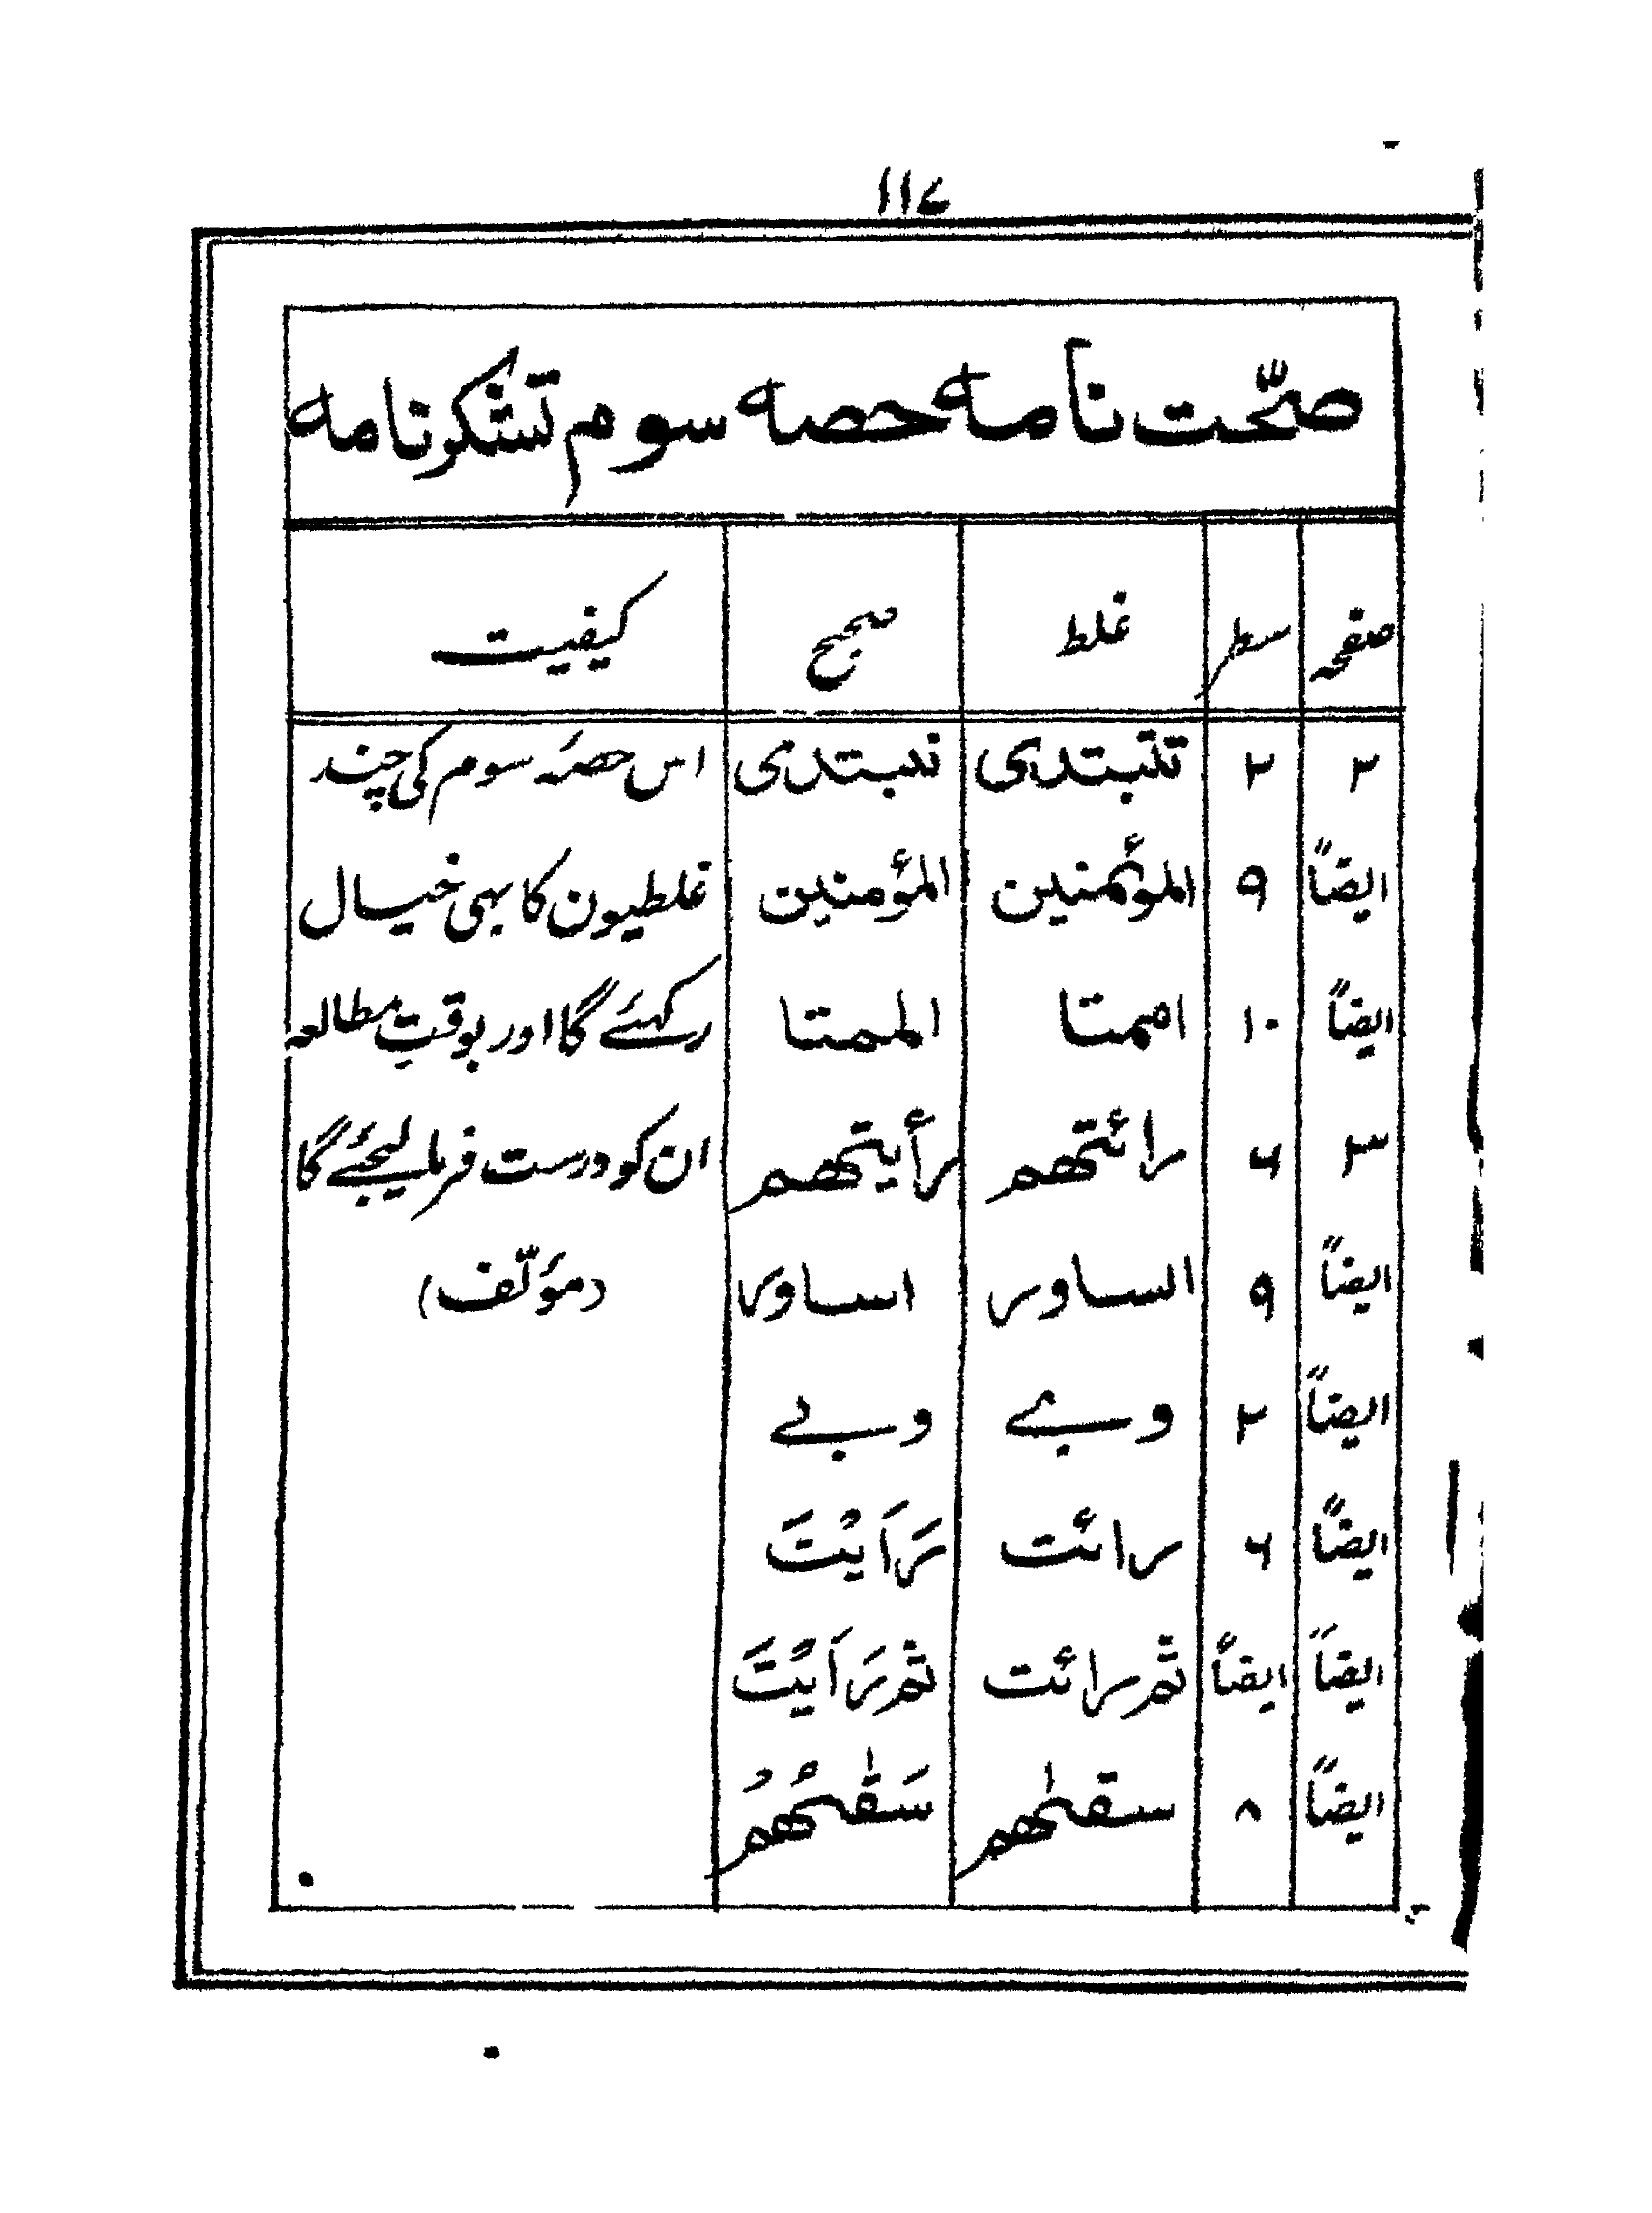 ۱۱۷
صحّت نامہ حصہ سوم تشکرنامہ
صفحہ سطر غلط صحیح کیفیت
۲ ۲ تنبتدی نبتدی اس حصۂ سوم کی چند
ایضاً ۹ الموٴمنین المؤمنین غلطیون کا بہی خیال
ایضاً ۱۰ امتا الممتا رکہئے گا اور بوقتِ مطالعہ
۳ ۶ رائتھم رأیتھم ان کو درست فرما لیجئے گا
ایضاً ۹ الساور اساور (مؤلّف)
ایضاً ۲ وبے وبی
ایضاً ۶ رائت رَاَیْتَ
ایضاً ایضاً ثم رائت ثم رَاَیْتَ
ایضاً ۸ سقٰھم سَقٰىهُمْ